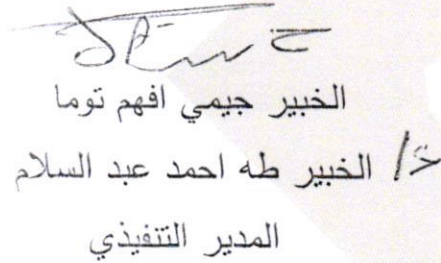 الخبير جيمي افهم توما
ع/ الخبير طه احمد عبد السلام
المدير التنفيذي